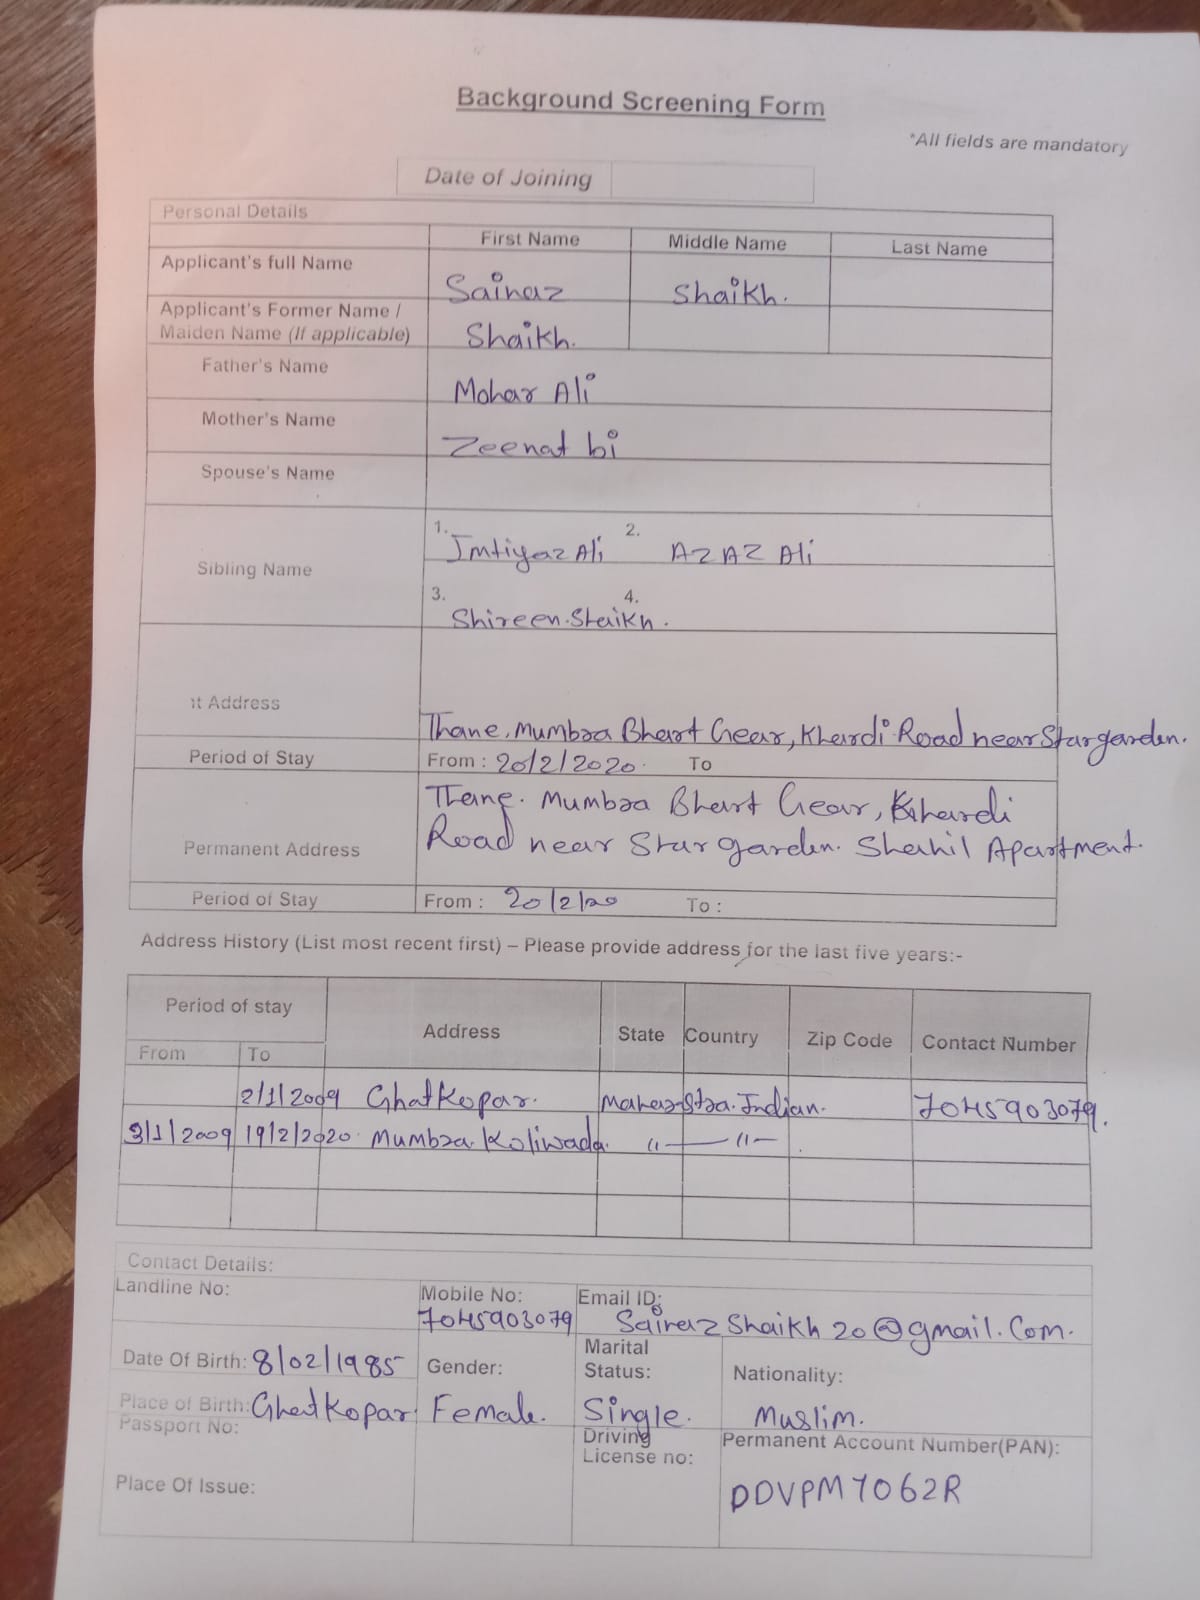 Background Screening Form
*All fields are mandatory
Date of Joining
Personal Details
First Name Middle Name Last Name
Applicant's full Name Sainaz Shaikh.
Applicant's Former Name /
Maiden Name (If applicable) Shaikh.
Father's Name Mohar Ali
Mother's Name Zeenat bi
Spouse's Name
1. Imtiyaz Ali 2. AZAZ Ali
Sibling Name
3. Shireen Shaikh. 4.
t Address Thane, Mumbra Bhart Gear, Khardi Road near Star garden.
Period of Stay From : 20/2/2020. To
Thane. Mumbra Bhart Gear, Khardi
Permanent Address Road near Star garden. Shahil Apartment.
Period of Stay From : 20/2/20 To :
Address History (List most recent first) – Please provide address for the last five years:-
Period of stay Address State Country Zip Code Contact Number
From To
2/1/2009 Ghatkopar. Maharstra. Indian. 7045903079.
3/1/2009 19/2/2020. Mumbra. Koliwada. 〃—〃—
Contact Details:
Landline No: Mobile No: 7045903079 Email ID: Sainaz Shaikh 20@gmail.Com.
Date Of Birth: 8/02/1985 Gender: Female. Marital Status: Single. Nationality: Muslim.
Place of Birth: Ghatkopar.
Passport No: Driving License no: Permanent Account Number(PAN):
Place Of Issue: DDVPM7062R